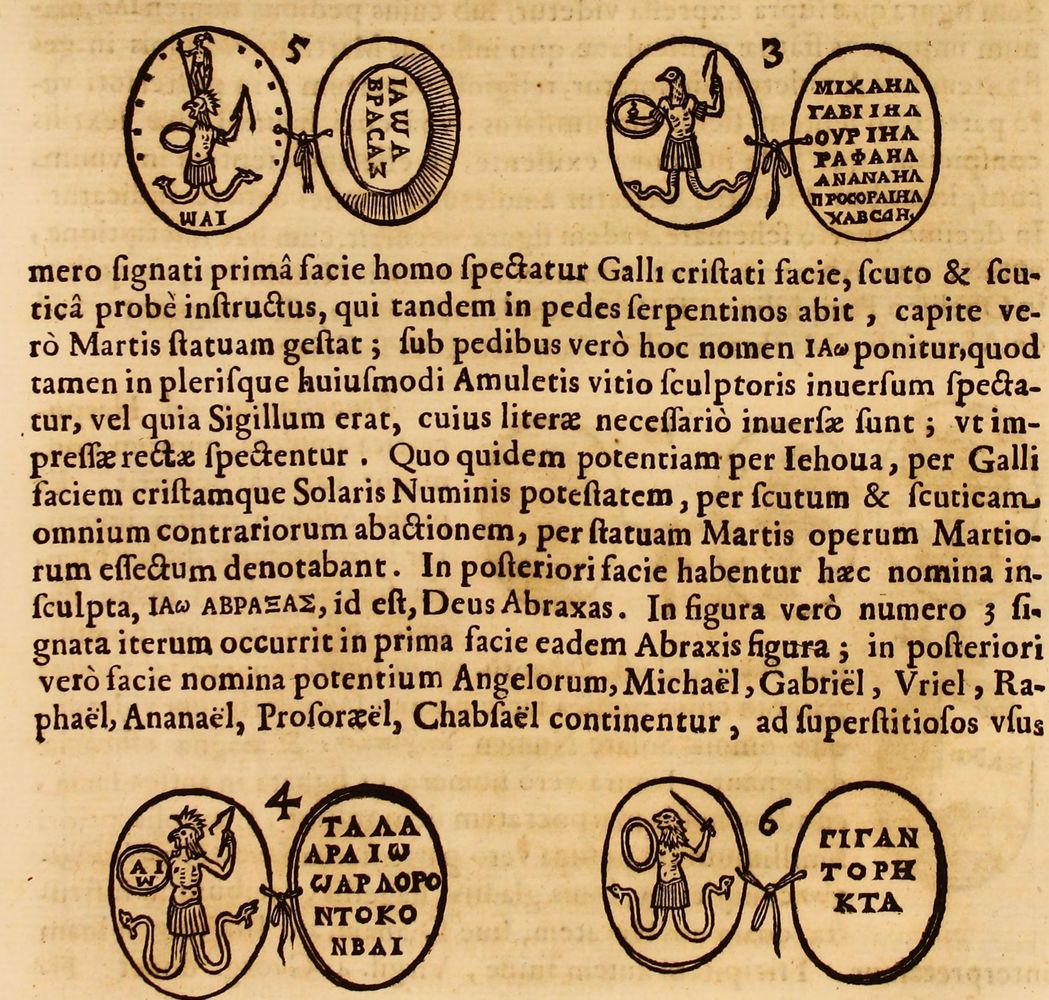 5
ΙΑΩΑ
ΒΡΑCΑΣ
ΩΑΙ
3
ΜΙΧΑΗΛ
ΓΑΒΙΙΗΛ
ΟΥΡΙΗΛ
ΡΑΦΑΗΛ
ΑΝΑΝΑΗΛ
ΠΡΟCΟΡΑΙΗΛ
mero ſignati primâ facie homo ſpectatur Galli criſtati facie, ſcuto & ſcu-
ticâ probè inſtructus, qui tandem in pedes ſerpentinos abit , capite ve-
rò Martis ſtatuam geſtat ; ſub pedibus verò hoc nomen ΙΑω ponitur, quod
tamen in pleriſque huiuſmodi Amuletis vitio ſculptoris inuerſum ſpecta-
tur, vel quia Sigillum erat, cuius literæ neceſſariò inuerſæ ſunt ; vt im-
preſſæ rectæ ſpectentur . Quo quidem potentiam per Iehoua, per Galli
faciem criſtamque Solaris Numinis poteſtatem, per ſcutum & ſcuticam
omnium contrariorum abactionem, per ſtatuam Martis operum Martio-
rum effectum denotabant . In poſteriori facie habentur hæc nomina in-
ſculpta, ΙΑω ΑΒΡΑΞΑΣ, id eſt, Deus Abraxas . In figura verò numero 3 ſi-
gnata iterum occurrit in prima facie eadem Abraxis figura ; in poſteriori
verò facie nomina potentium Angelorum, Michaël, Gabriël , Vriel , Ra-
phaël, Ananaël, Proſoræël, Chabſaël continentur , ad ſuperſtitioſos vſus
4
ΑΙ
Ω
ΤΑΛΑ
ΑΡΑΙΩ
ΩΑΡΔΟΡΟ
ΝΤΟΚΟ
ΝΒΑΙ
6
ΓΙΓΑΝ
ΤΟΡΗ
ΚΤΑ